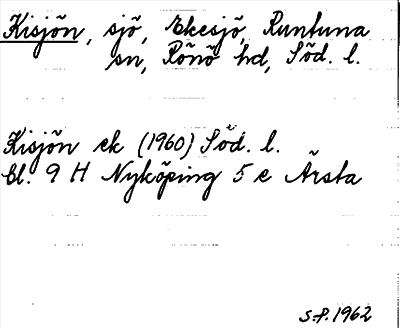 Kisjön, sjö, Ekesjö, Runtuna
sn, Rönö hd, Söd. l.
Kisjön ek (1960) Söd. l.
Bl. 9 H Nyköping 5 e Årsta
S.P. 1962